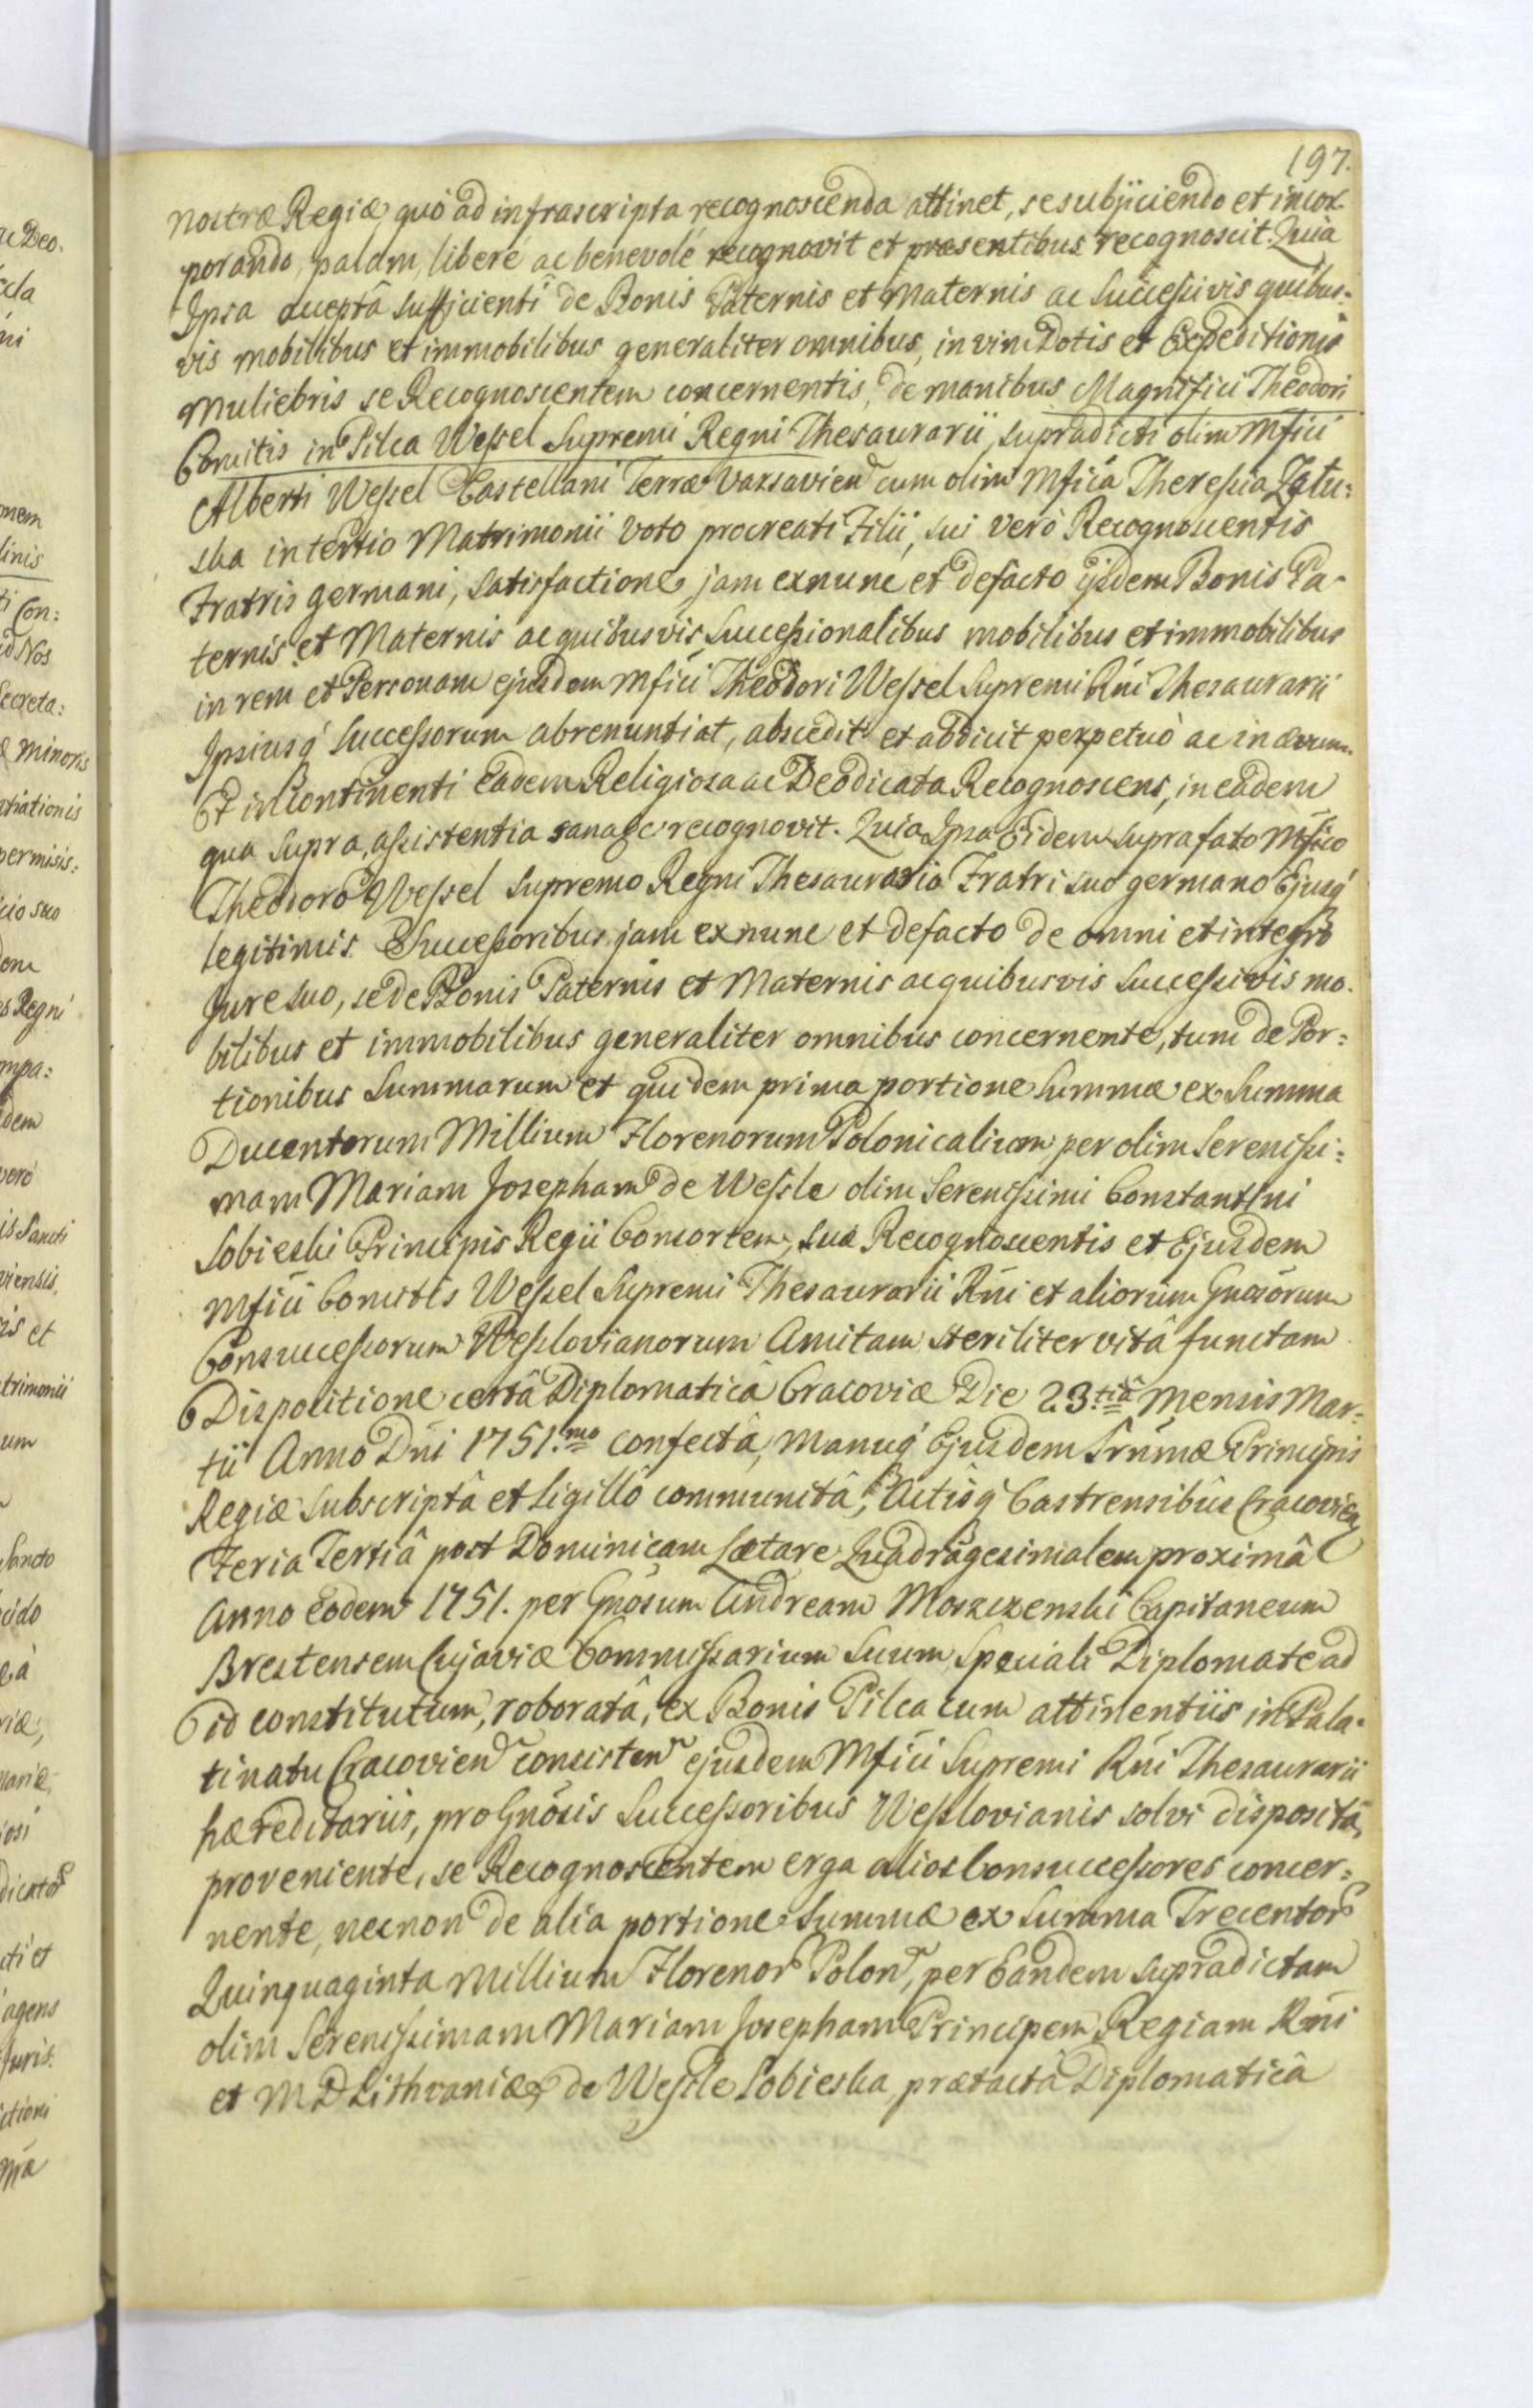 197.
nostræ Regiæ, quò ad infrascripta recognoscenda attinet, se subjiciendo et incor
porando, palàm, liberè ac benevolè recognovit et præsentibus recognoscit. Quia
Ipsa acceptâ sufficienti de Bonis Paternis et Maternis ac Successivis quibus:
vis mobilibus et immobilibus generaliter omnibus, in vim Dotis et Expeditionis
Muliebris se Recognoscentem concernentis, de manibus Magnifici Theodori
Comitis in Pilca Wessel Supremi Regni Thesaurarii, supradicti olim Mfici
Alberti Wessel Castellani Terræ Varsavien cum olim Mfica Theressia Zału:
ska in tertio Matrimonii voto procreati Filii, sui verò Recognoscentis
Fratris germani, satisfactione, jam exnunc et defacto ijsdem Bonis Pa-
ternis et Maternis ac quibusvis Successionalibus mobilibus et immobilibus
in rem et Personam ejusdem Mfici Theodori Wessel Supremi Rni Thesaurarii
Ipsiusq' Successorum abrenuntiat, abscedit et abdicit perpetuò ac in ævum.
Et in continenti eadem Religiosa ac Deodicata Recognoscens, in eadem
qua supra, assistentia sana &c recognovit. Quia Ipsa Eidem suprafato Mfico
Theodoro Wessel Supremo Regni Thesaurario Fratri suo germano Ejusq'
legitimis Successoribus, jam exnunc et defacto de omni et integro
Jure suo, se de Bonis Paternis et Maternis ac quibusvis Successivis mo.
bilibus et immobilibus generaliter omnibus concernente, tum de Por:
tionibus Summarum et quidem prima portione Summæ ex Summa
Ducentorum Millium Florenorum Polonicalium per olim Serenissi:
mam Mariam Josepham de Wessle olim Serenissimi Constantini
Sobieski Principis Regii Consortem, sua Recognoscentis et Ejusdem
Mfici Comitis Wessel Supremi Thesaurarii Rni et aliorum Gnosorum
Consuccessorum Wesslovianorum Amitam steriliter vitâ functam
Dispositione certâ Diplomaticâ Cracoviæ Die 23.tiâ Mensis Mar:
tii Anno Dni 1751.mo confectâ, manuq' Ejusdem Srnmæ Principis
Regiæ subscriptâ et sigillô communitâ, Actisq' Castrensibus Cracovien
Feria Tertiâ post Dominicam Lætare Quadragesimalem proximâ
Anno eodem 1751. per Gnosum Andream Moszczenski Capitaneum
Brestensem Cujaviæ Commissarium suum Speciali Diplomate ad
id constitutum, roboratâ, ex Bonis Pilca cum attinentiis in Pala-
tinatu Cracovien consisten ejusdem Mfici Supremi Rni Thesaurarii
hæreditariis, pro Gnosis Successoribus Wesslovianis solvi dispositâ,
proveniente, se Recognoscentem erga alios Consuccessores concer:
nente, necnon de alia portione Summæ ex Summa Trecentor
Quinquaginta Millium Florenor Polon, per Eandem supradictam
olim Serenissimam Mariam Josepham Principem Regiam Rni
et M D Lithvaniæ, de Wessle Sobieska, prætactâ Diplomaticâ